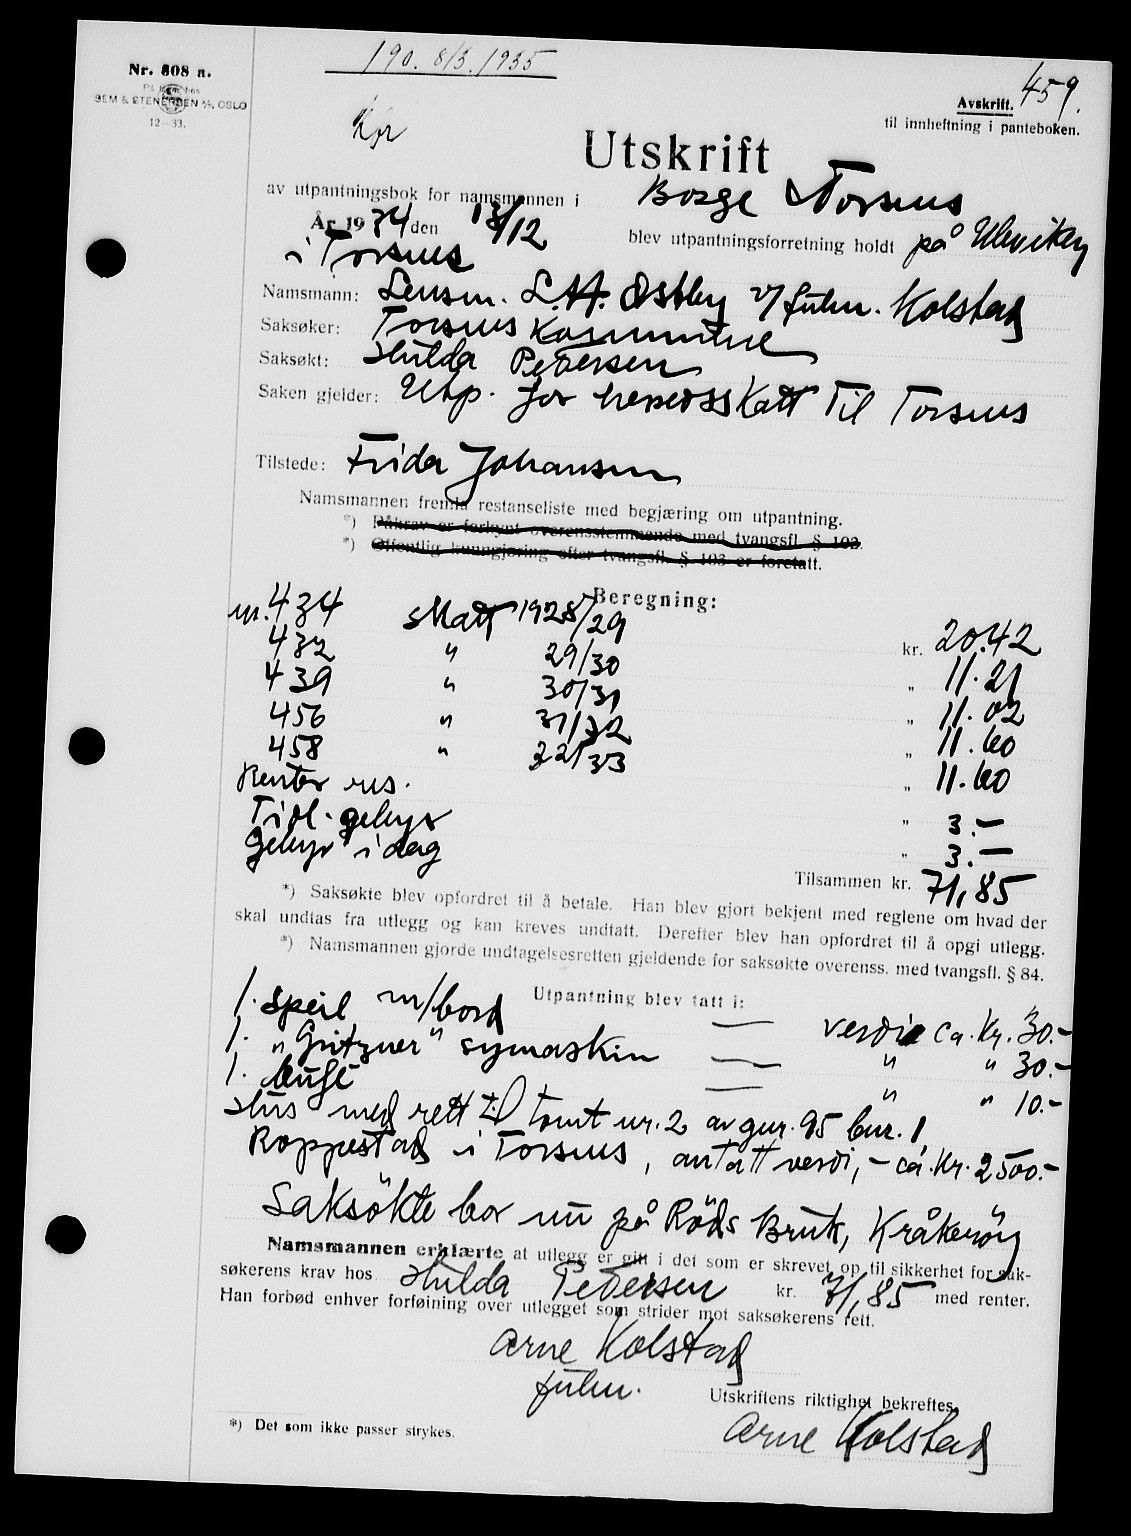 190. 8/3. 1935
Nr. 808 a.
SEM & STENERSEN A/S, OSLO
12—33.
459.
Avskrift.
til innheftning i panteboken.
Utskrift
av utpantningsbok for namsmannen i Borge Torsnes
År 1934 den 13/12 blev utpantningsforretning holdt på Ulevikey
i Torsnes
Namsmann: Lensm. L.A. Østby v/ fulm. Kolstad
Saksøker: Torsnes Kommune
Saksøkt: Hulda Pedersen
Saken gjelder: Utp. for herredsskatt til Torsnes
Tilstede: Frida Johansen
Namsmannen fremla restanseliste med begjæring om utpantning.
*) Påkrav er forkynt overensstemmende med tvangsfl. § 103.
*) Offentlig kunngjøring efter tvangsfl. § 103 er foretatt.
Beregning:
nr. 434 skatt 1928/29 kr. 20.42
432 " 29/30 " 11.21
439 " 30/31 " 11.02
456 " 31/32 " 11.60
458 " 32/33 " 11.60
Renter res.
Tidl. gebyr " 3.—
Gebyr i dag " 3.—
Tilsammen kr. 71,85
*) Saksøkte blev opfordret til å betale. Han blev gjort bekjent med reglene om hvad der
skal undtas fra utlegg og kan kreves undtatt. Derefter blev han opfordret til å opgi utlegg.
*) Namsmannen gjorde undtagelsesretten gjeldende for saksøkte overenss. med tvangsfl. § 84.
Utpantning blev tatt i:
1. speil m/bord — verdi ca. Kr. 30.-
1. „Gritzner" symaskin — " " 30.-
1. bufe — " " 10.-
Hus med rett til tomt nr. 2 av gnr. 95 bnr. 1
Roppestad i Torsnes, antatt verdi, - ca. Kr. 2500.-
Saksökte bor nu på Röds Bruk, Kråkeröy
Namsmannen erklærte at utlegg er gitt i det som er skrevet op til sikkerhet for sak-
søkerens krav hos Hulda Pedersen kr. 71,85 med renter.
Han forbød enhver forføining over utlegget som strider mot saksøkerens rett.
Arne Kolstad
fulm.
Utskriftens riktighet bekreftes.
Arne Kolstad
*) Det som ikke passer strykes.